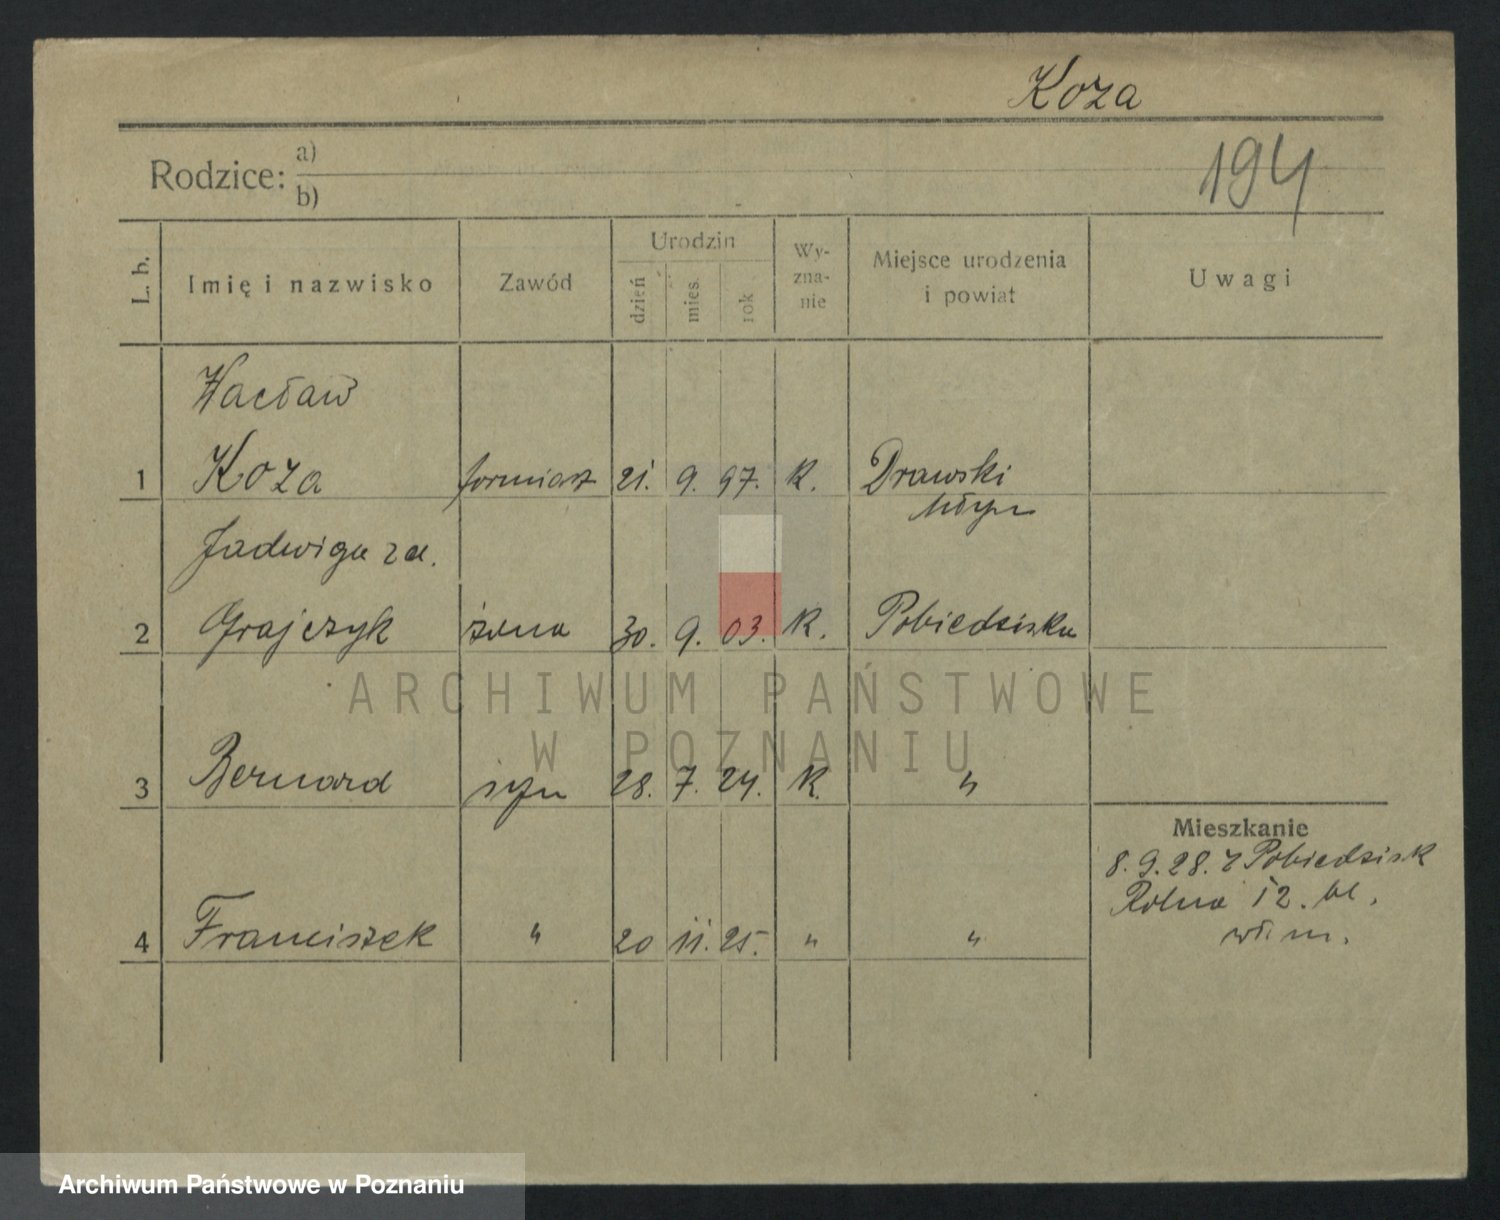 Koza
194
Rodzice: a)
b)
L. b.
Imię i nazwisko
Zawód
Urodzin
dzień
mies.
rok
Wy-
zna-
nie
Miejsce urodzenia
i powiat
Uwagi
Wacław
1 Koza formiarz 21. 9. 97. K. Drawski
Młyn
Jadwiga
2 Grajczyk żona 30. 9. 03. K. Pobiedziska
ARCHIWUM PAŃSTWOWE
W POZNANIU
3 Bernard syn 28. 7. 24. K. "
Mieszkanie
8.9.28. z Pobiedzisk
4 Franciszek " 20 11. 25. " "
Rolna 12.
Archiwum Państwowe w Poznaniu